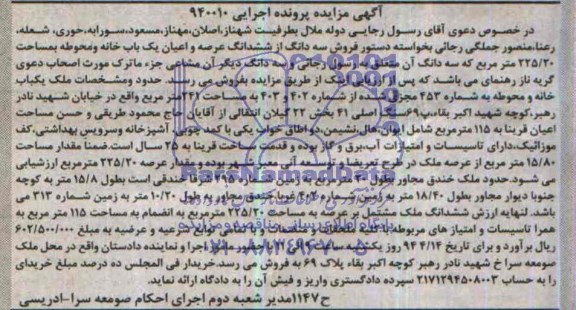 آگهی مزایده پرونده اجرایی ۹۴۰۰۱۰
در خصوص دعوی آقای رسول رجایی دوله ملال بطرفیت شهناز،اصلان،مهناز،مسعود،سورابه،حوری، شعله،
رعنا،منصور جملگی رجائی بخواسته دستور فروش سه دانگ از ششدانگ عرصه و اعیان یک باب خانه ومحوطه بمساحت
۲۲۵/۲۰ متر مربع که سه دانگ آن متعلق رجائی سه دانگ دیگر آن مشاعی جزء ماترک مورث اصحاب دعوی
گربه ناز رهنمای می باشد که پس از ارزیابی ملک از طریق مزایده بفروش می رسد. حدود ومشخصات ملک یکباب
خانه و محوطه به شماره ۴۵۳ مجزی شده از شماره ۴۰۲ و ۴۰۳ به مساحت ۲۴۱ متر مربع واقع در خیابان شهید نادر
رهبر،کوچه شهید اکبر بقاء،پ۶۹ سنگ اصلی ۴۱ بخش ۲۲ گیلان انتقالی از آقایان حاج محمود طریقی و حسن مساحت
اعیان قریبا به ۱۱۵ متر مربع شامل ایوان،هال،نشیمن،دو اطاق خواب یکی با کمد چوبی، آشپزخانه وسرویس بهداشتی،کف
موزائیک،دارای تاسیسات و امتیازات آب،برق و گاز بوده و قدمت ساخت قریبا به ۲۵ سال است.ضمنا مقدار مساحت
۱۵/۸۰ متر مربع از عرصه ملک در طرح تعریضا و توسعه آتی معبر شهر بوده و مقدار عرصه ۲۲۵/۲۰ مترمربع ارزشیابی
می شود.حدود ملک خندق مجاور بطول به زمین شماره ۳۹۵ غربا خندقی است بطول ۱۵/۸ متر به کوچه
جنوبا دیوار مجاور بطول ۱۸/۴۰ متر به زمین شماره ۴۰۴ خندق مجاور به طول ۱۰/۲۰ متر به زمین شماره ۳۱۳ می
باشد. لنهایه ارزش ششدانگ ملک مشتمل بر عرصه به مساحت ۲۲۵/۲۰ مترمربع به انضمام به مساحت ۱۱۵ متر مربع به
همرا تاسیسات و امتیاز های مربوطه با کلیه متعلقات و مشخصات و تمامی توابع عرفیه و عرضیه به مبلغ ۶۰۲/۵۰۰/۰۰۰
ریال بر آورد و برای تاریخ ۹۴/۴/۱۴ روز یکشنبه ساعت با حضور مامور اجرا و نماینده دادستان واقع در محل ملک
صومعه سرا خ شهید نادر رهبر کوچه اکبر بقاء پلاک ۶۹ به فروش می رسد.خریدار فی المجلس ده درصد مبلغ خریداری
را به حساب ۲۱۷۱۲۹۴۵۰۸۰۰۳ سپرده دادگستری واریز و فیش آن را به دادگاه ارائه نماید.
ح۱۱۴۷ مدیر شعبه دوم اجرای احکام صومعه سرا-ادریسی